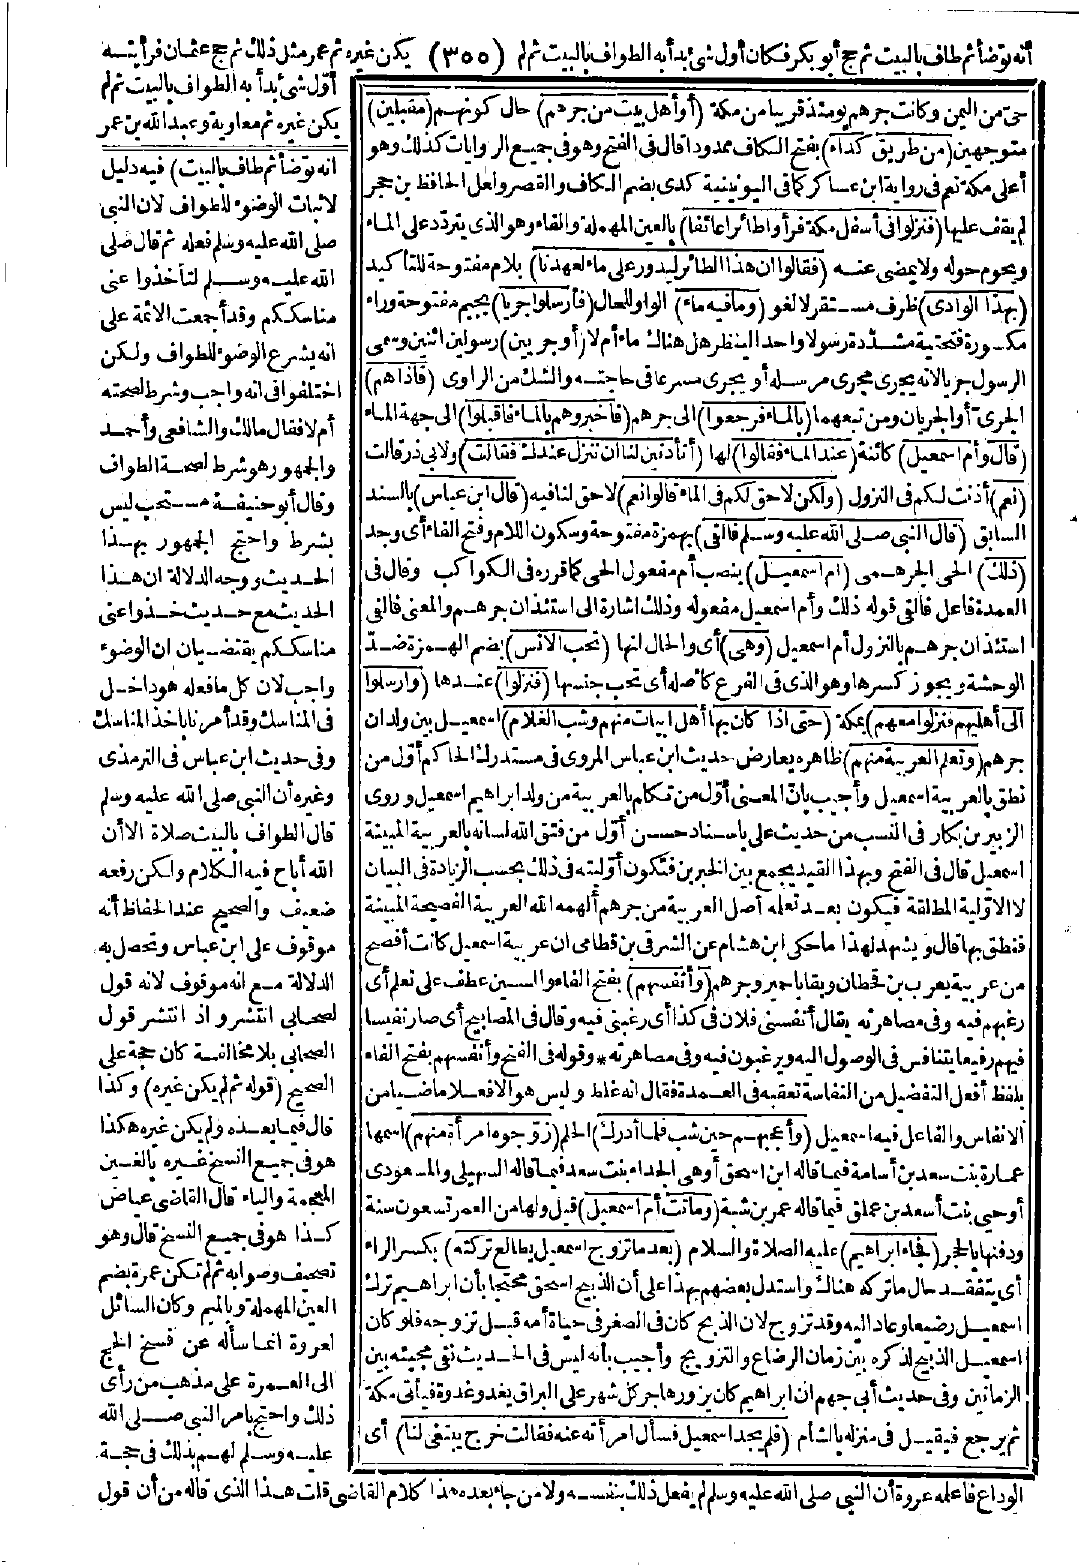 أنه توضأ ثم طاف بالبيت ثم حج أبو بكر فكان أول شئ بدأ به الطواف بالبيت ثم لم (٣٥٥) يكن غيره ثم عمر مثل ذلك ثم حج عثمان فرأيته
أول شئ بدأ به الطواف بالبيت ثم لم
يكن غيره ثم معاوية وعبد الله بن عمر
حى من اليمن وكانت جرهم يومئذ قريبا من مكة (أو أهل بيت من جرهم) حال كونهم (مقبلين)
متوجهين (من طريق كداء) بفتح الكاف ممدودا قال فى الفتح وهو فى جميع الروايات كذلك وهو
أعلى مكة نعم فى رواية ابن عساكر كما فى اليونينية كدى بضم الكاف والقصر ولعل الحافظ بن حجر
لم يقف عليها (فنزلوا فى أسفل مكة فرأوا طائرا عائفا) بالعين المهملة والفاء وهو الذى يتردد على الماء
ويحوم حوله ولا يمضى عنه (فقالوا ان هذا الطائر ليدور على ماء لعهدنا) بلام مفتوحة للتأكيد
(بهذا الوادى) ظرف مستقر لا لغو (وما فيه ماء) الواو للحال (فأرسلوا جريا) بجيم مفتوحة وراء
مكسورة فتحتية مشددة رسولا واحدا لينظر هل هناك ماء أم لا (أو جريين) رسولين اثنين وسمى
الرسول جريا لانه يجرى مجرى مرسله أو يجرى مسرعا فى حاجته والشك من الراوى (فاذا هم)
الجرى أو الجريان ومن تبعهما (بالماء فرجعوا) الى جرهم (فأخبروهم بالماء فاقبلوا) الى جهة الماء
(قال وأم اسمعيل) كائنة (عند الماء فقالوا) لها (أتأذنين لنا ان ننزل عندك فقالت) ولابى ذر قالت
(نعم) أذنت لكم فى النزول (ولكن لا حق لكم فى الماء قالوا نعم) لا حق لنا فيه (قال ابن عباس) بالسند
السابق (قال النبى صلى الله عليه وسلم فالفى) بهمزة مفتوحة وسكون اللام وفتح الفاء أى وجد
(ذلك) الحى الجرهمى (أم اسمعيل) بنصب أم مفعول الحى كما قرره فى الكواكب وقال فى
العمدة فاعل فالفى قوله ذلك وأم اسمعيل مفعوله وذلك اشارة الى استئذان جرهم والمعنى فالفى
استئذان جرهم بالنزول أم اسمعيل (وهى) أى والحال انها (تحب الانس) بضم الهمزة ضد
الوحشة ويجوز كسرها وهو الذى فى الفرع كأصله أى تحب جنسها (فنزلوا) عندها (وأرسلوا
الى أهليهم فنزلوا معهم) بمكة (حتى اذا كان بها أهل ابيات منهم وشب الغلام) اسمعيل بين ولدان
جرهم (وتعلم العربية منهم) ظاهره يعارض حديث ابن عباس المروى فى مستدرك الحاكم أول من
نطق بالعربية اسمعيل وأجيب بان المعنى أول من تكلم بالعربية من ولد ابراهيم اسمعيل وروى
الزبير بن بكار فى النسب من حديث على باسناد حسن أول من فتق الله لسانه بالعربية المبينة
اسمعيل قال فى الفتح وبهذا القيد يجمع بين الخبرين فتكون أوليته فى ذلك بحسب الزيادة فى البيان
لا الاولية المطلقة فيكون بعد تعلمه أصل العربية من جرهم ألهمه الله العربية الفصيحة المبينة
فنطق بها قال ويشهد لهذا ما حكى ابن هشام عن الشرقى بن قطامى ان عربية اسمعيل كانت أفصح
من عربية يعرب بن قحطان وبقايا حمير وجرهم (وأنفسهم) بفتح الفاء والسين عطف على تعلم أى
رغبهم فيه وفى مصاهرته يقال أنفسنى فلان فى كذا أى رغبنى فيه وقال فى المصابيح أى صار نفيسا
فيهم رفيعا يتنافس فى الوصول اليه ويرغبون فيه وفى مصاهرته * وقوله فى الفتح وأنفسهم بفتح الفاء
بلفظ أفعل التفضيل من النفاسة تعقبه فى العمدة فقال انه غلط وليس هو الا فعلا ماضيا من
الانفاس والفاعل فيه اسمعيل (وأعجبهم حين شب فلما أدرك) الحلم (زوجوه امرأة منهم) اسمها
عمارة بنت سعد بن أسامة فيما قاله ابن اسحق أو هى الجداء بنت سعد فيما قاله السهيلى والمسعودى
أو حيى بنت أسعد بن عملق فيما قاله عمر بن شبة (وماتت أم اسمعيل) قيل ولها من العمر تسعون سنة
ودفنها بالحجر (فجاء ابراهيم) عليه الصلاة والسلام (بعد ما تزوج اسمعيل يطالع تركته) بكسر الراء
أى يتفقد حال ما تركه هناك واستدل بعضهم بهذا على أن الذبيح اسحق محتجا بأن ابراهيم ترك
اسمعيل رضيعا وعاد اليه وقد تزوج لان الذبح كان فى الصغر فى حياة أمه قبل تزوجه فلو كان
اسمعيل الذبيح لذكره بين زمان الرضاع والتزويج وأجيب بأنه ليس فى الحديث نفى مجيئه بين
الزمانين وفى حديث أبى جهم ان ابراهيم كان يزور هاجر كل شهر على البراق يغدو غدوة فيأتى مكة
ثم يرجع فيقيل فى منزله بالشأم (فلم يجد اسمعيل فسأل امرأته عنه فقالت خرج يبتغى لنا) أى
انه توضأ ثم طاف بالبيت) فيه دليل
لاثبات الوضوء للطواف لان النبى
صلى الله عليه وسلم فعله ثم قال صلى
الله عليه وسلم لتأخذوا عنى
مناسككم وقد أجمعت الائمة على
انه يشرع الوضوء للطواف ولكن
اختلفوا فى انه واجب وشرط لصحته
أم لا فقال مالك والشافعى وأحمد
والجمهور هو شرط لصحة الطواف
وقال أبو حنيفة مستحب ليس
بشرط واحتج الجمهور بهذا
الحديث ووجه الدلالة ان هذا
الحديث مع حديث خذوا عنى
مناسككم يقتضيان ان الوضوء
واجب لان كل ما فعله هو داخل
فى المناسك وقد أمرنا باخذ المناسك
وفى حديث ابن عباس فى الترمذى
وغيره أن النبى صلى الله عليه وسلم
قال الطواف بالبيت صلاة الا أن
الله أباح فيه الكلام ولكن رفعه
ضعيف والصحيح عند الحفاظ أنه
موقوف على ابن عباس وتحصل به
الدلالة مع انه موقوف لانه قول
لصحابى انتشر واذ انتشر قول
الصحابى بلا مخالفة كان حجة على
الصحيح (قوله ثم لم يكن غيره) وكذا
قال فيما بعده ولم يكن غيره هكذا
هو فى جميع النسخ غيره بالغين
المعجمة والياء قال القاضى عياض
كذا هو فى جميع النسخ قال وهو
تصحيف وصوابه ثم لم تكن عمرة بضم
العين المهملة وبالميم وكان السائل
لعروة انما سأله عن فسخ الحج
الى العمرة على مذهب من رأى
ذلك واحتج بامر النبى صلى الله
عليه وسلم لهم بذلك فى حجة
الوداع فاعلمه عروة أن النبى صلى الله عليه وسلم لم يفعل ذلك بنفسه ولا من جاء بعده هذا كلام القاضى قلت هذا الذى قاله من أن قول